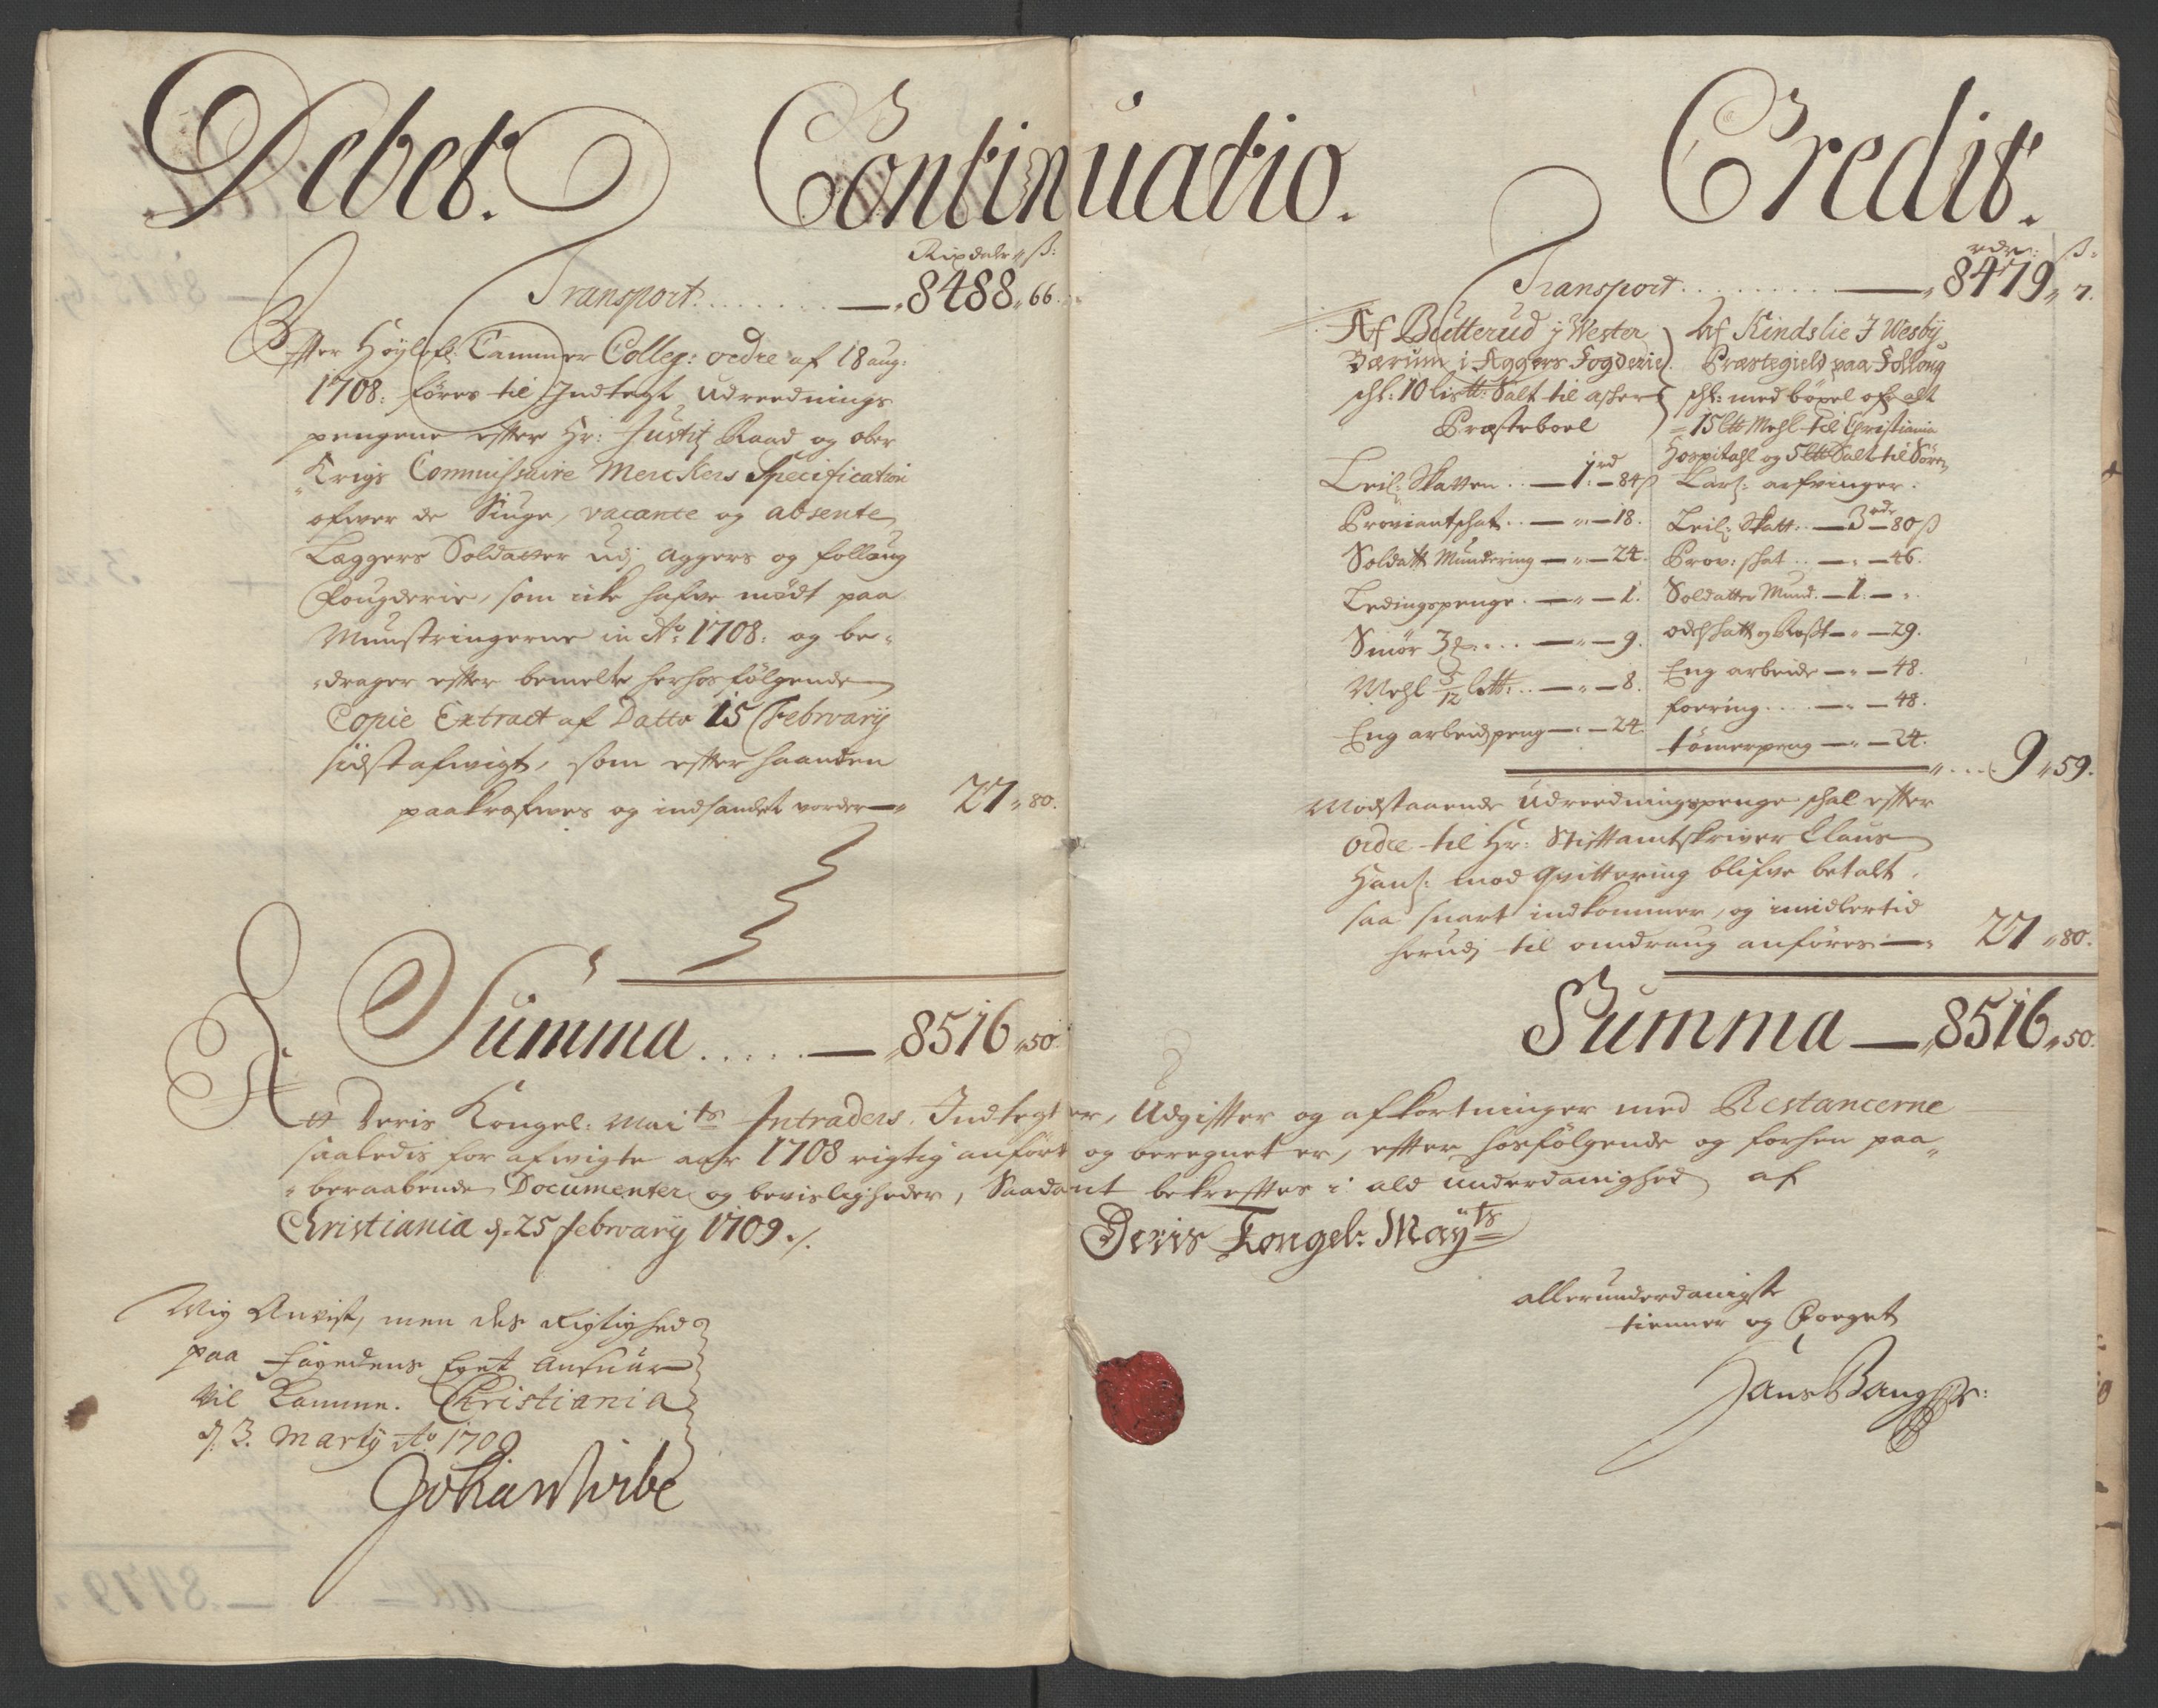 Debet. Continuatio. Credit.
Rixdaler ß:
Transport. . . . . . . . — 8488 „ 66.
Effter Høylofl: Cammer Colleg: ordre af 18 aug:
1708: føres til Indtegt Udreednings
pengene effter Hr: Justitz Raad og ober
Krigs Commissaire Merckers Specification
ofwer de Siuge, vacante og absente
Læggers Soldatter udj Aggers og follaug
Fougderie, som icke hafve mødt paa
Munstringerne in Ao: 1708: og be-
drager effter bemelte herhos følgende
Copie Extract af Datto 15 Februarij
sidst afwigt, som effter haanden
paakræfwes og indsandet vorder — 27 „ 80.
Summa . . . . . — 8516 „ 50.
rdr: ß:
Transport . . . . . . . . . — 8479 „ 7.
Af Butterud j Wester
Bærum i Aggers Fogderie
schl: 10 lis℔: Salt til asker
Præsteboel
Leil: Skatten . . — 1rd — 84 ß
Proviantschat . . — „ — 18.
Soldatt Mundering — „ — 24.
Ledingspenge . — „ — 1.
Smør 3 . . . — „ — 9.
Mehl 5/12 l℔: . . — „ — 8.
Eng arbeidspeng — „ — 24.
Af Kindslie J Wesby
Præstegield paa Folloug
schl: med böxel ofr alt
15 l℔ Mehl til Christiania
Hospitahl og 5 l℔ Salt til Sören
Lars: arfvinger.
Leil: Skatt: — 3 rdr — 80 ß
Prov: schat . . — „ — 46.
Soldatter Mund. — 1 „ — „
odelschatt og Rosst — „ — 29.
Eng arbeide — „ — 48.
foering . . . . — „ — 48.
tømerpeng — „ — 24.
. . . . 9 „ 59.
Modstaaende Udreedningspenge schal effter
ordre til Hr: Stifftamtskriver Claus
Hans: mod Qvittering blifve betalt,
saa snart indkommer, og imidlertid
herudj til omdraug anføres — 27 „ 80.
Summa — 8516 „ 50.
Att Deris Kongel: Maits Intraders Indtegter, Udgiffter og afkortninger med Restancerne
saaledis for afwigte aar 1708 rigtig anført og beregnet er, effter hosfølgende og forhen paa-
beraabende Documenter og bevisligheder, Saadant bekrefftes i ald underdanighed af
Christiania d. 25 februarij 1709 ./.
Deris Kongel: Mayts
allerunderdanigste
tienner og Foeget
Jens Bang
Mig Anvist, men des Rigtighed
paa Fogedens Eget Ansuar
vil komme. Christiania
d. 3. Martij Ao 1709
Johan Wibe